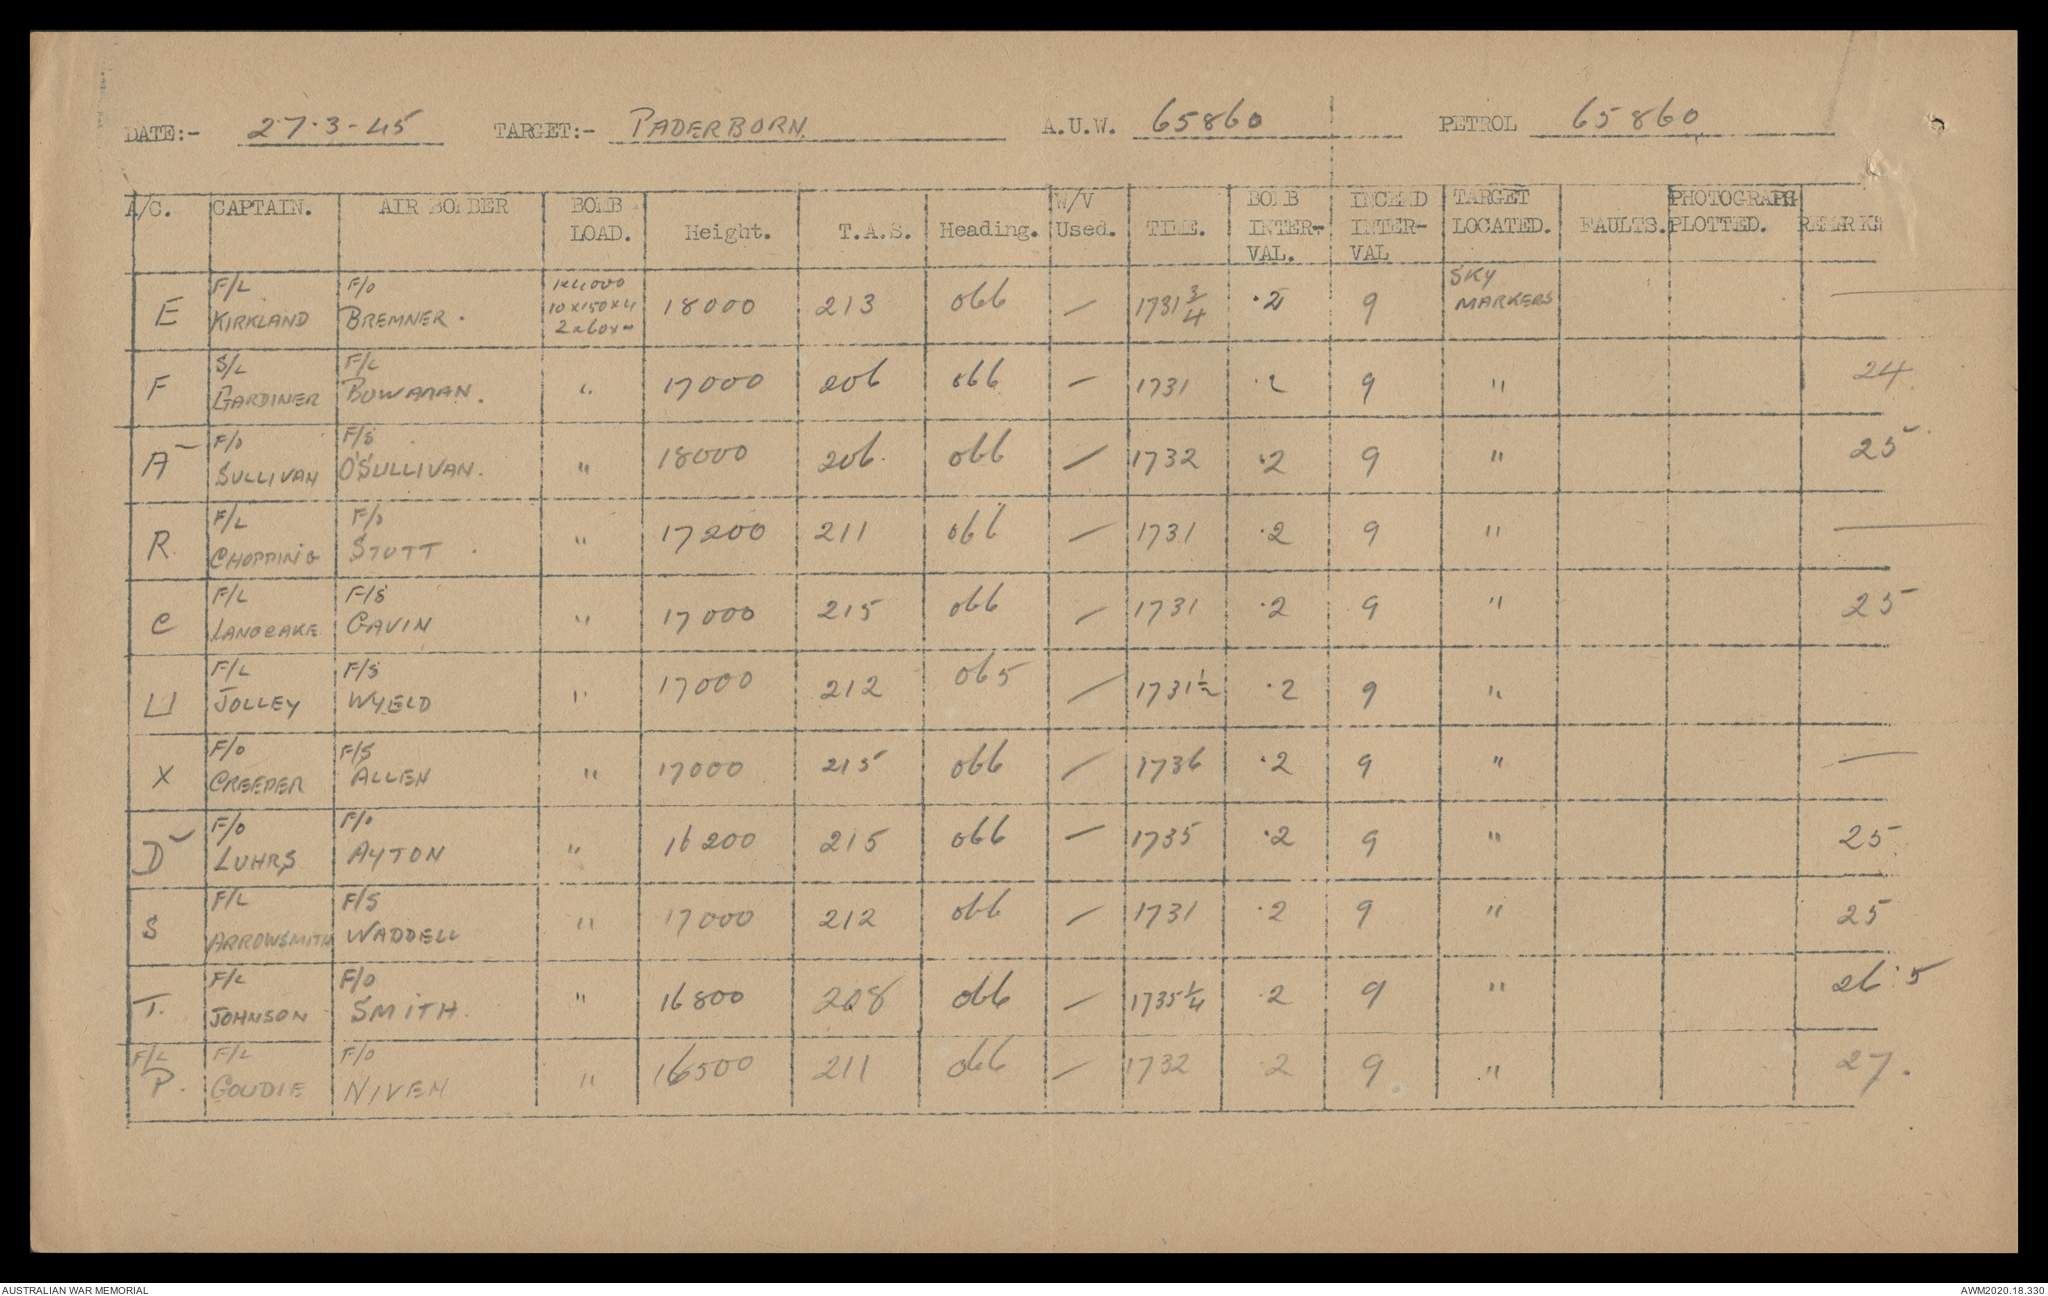 DATE:- 27.3-45 TARGET:- PADERBORN. A.U.W. 65860 PETROL 65860
A/C. CAPTAIN. AIR BOMBER BOMB LOAD. Height. T.A.S. Heading. W/V Used. TIME. BOMB INTER-VAL. INCEND INTER-VAL TARGET LOCATED. FAULTS. PHOTOGRAPH PLOTTED. REMARKS
E F/L KIRKLAND F/O BREMNER. 1x4000 10x150x4 2x60x" 18000 213 066 — 1731 3/4 .2 9 SKY MARKERS —
F S/L GARDINER F/L BOWMAN. " 17000 206 066 — 1731 .2 9 " 24.
A F/O SULLIVAN F/S O'SULLIVAN. " 18000 206. 066 — 1732 .2 9 " 25
R. F/L CHOPPING F/O STOTT. " 17200 211 066 — 1731 .2 9 " —
C F/L LANGCAKE F/S GAVIN " 17000 215 066 — 1731 .2 9 " 25
U F/L JOLLEY F/S WYELD " 17000 212 065 — 1731 1/2 .2 9 "
X F/O CREEPER F/S ALLEN " 17000 215 066 — 1736 .2 9 " —
D F/O LUHRS F/O AYTON " 16200 215 066 — 1735 .2 9 " 25
S F/L ARROWSMITH F/S WADDELL " 17000 212 066 — 1731 .2 9 " 25
T. F/L JOHNSON F/O SMITH. " 16800 208 066 — 1735 1/4 .2 9 " 26.5
F/L P. F/L GOUDIE F/O NIVEN " 16500 211 066 — 1732 .2 9 " 27.
AUSTRALIAN WAR MEMORIAL AWM2020.18.330